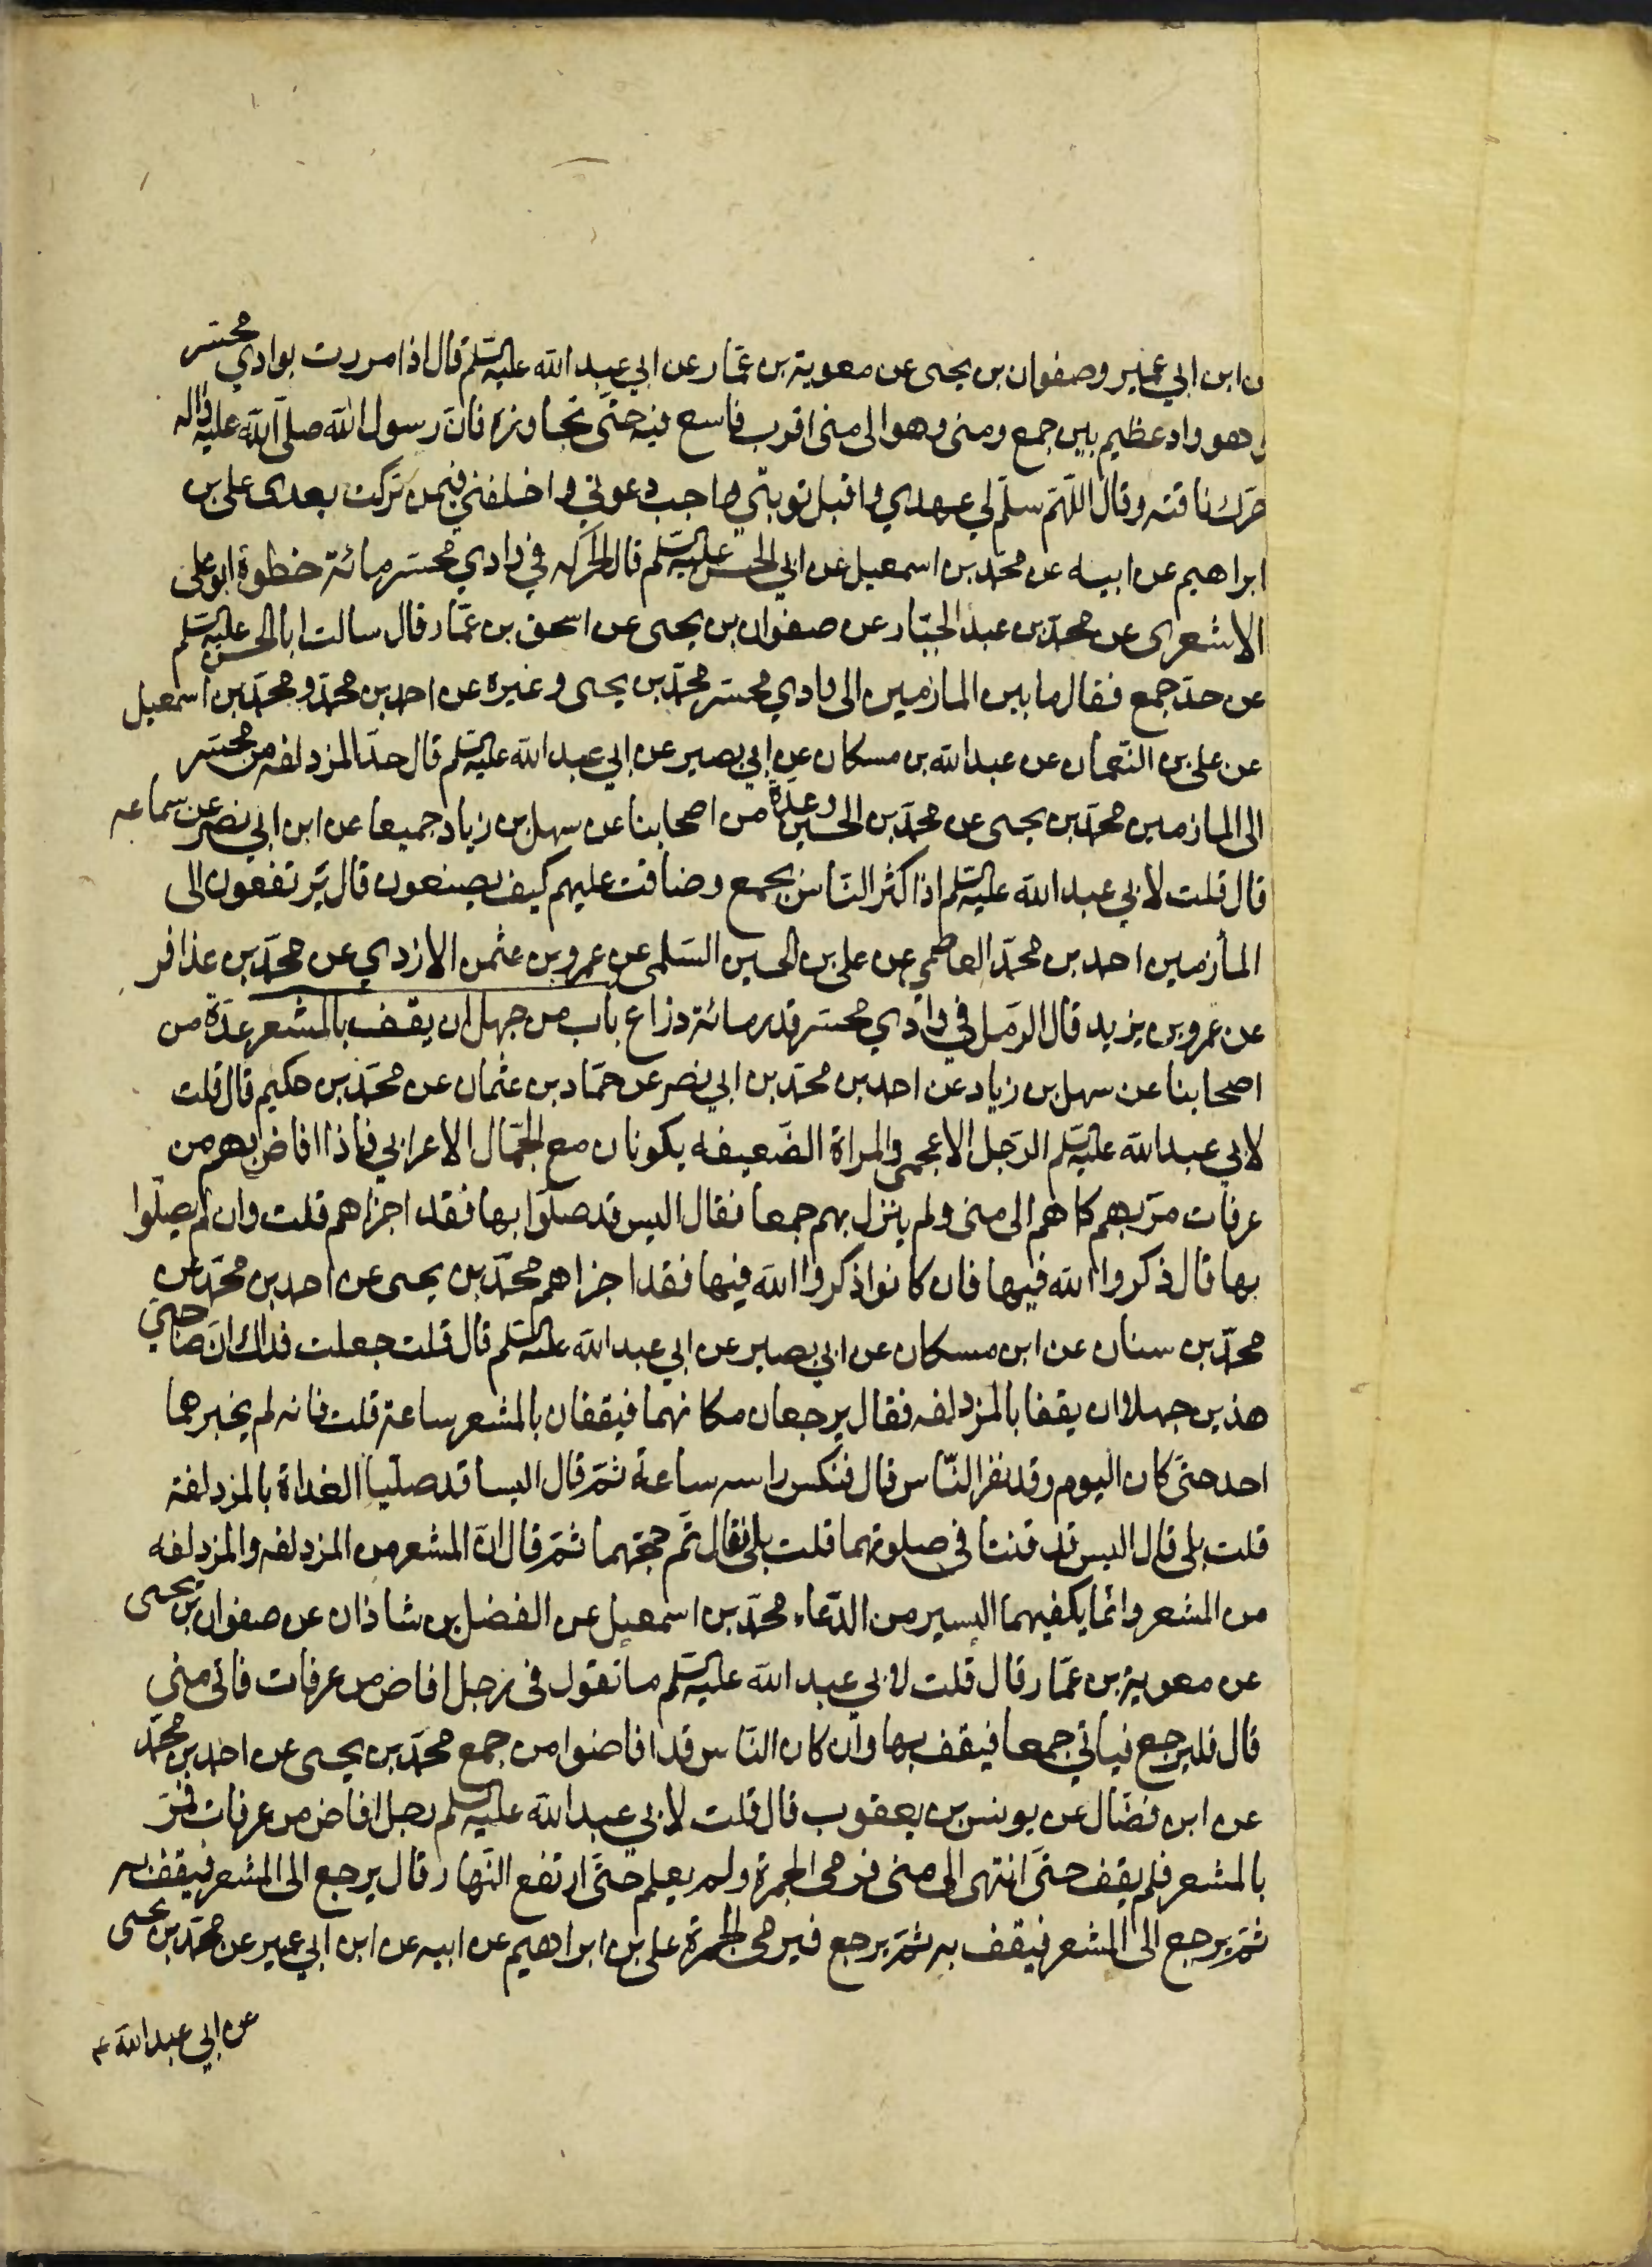 ن ابن ابي عمير وصفوان بن يحيى عن معوية بن عمّار عن ابي عبد الله عليه السّلم قال اذا مررت بوادي محسّر
وهو واد عظيم بين جمع ومنى وهو الى منى اقرب فاسع فيه حتّى تجاوزه فانّ رسول الله صلّى الله عليه واله
حرّك ناقته وقال اللّهمّ سلّم لي عهدي واقبل توبتي واجب دعوتي واخلفني فيمن تركت بعدى على بن
ابراهيم عن ابيه عن محمّد بن اسمعيل عن ابي الحسن عليه السّلم قال الحركه في وادي محسّر مائة خطوة ابو على
الاشعرى عن محمّد بن عبد الجبّار عن صفوان بن يحيى عن اسحق بن عمّار قال سالت ابا الحسن عليه السّلم
عن حدّ جمع فقال ما بين المازمين الى وادي محسّر محمّد بن يحيى وغيره عن احمد بن محمّد ومحمّد بن اسمعيل
عن على بن النّعمان عن عبد الله بن مسكان عن ابي بصير عن ابي عبد الله عليه السّلم قال حدّ المزدلفه من محسّر
الى المازمين محمّد بن يحيى عن محمّد بن الحسين وعدّة من اصحابنا عن سهل بن زياد جميعا عن ابن ابي نصر عن سماعه
قال قلت لابي عبد الله عليه السّلم اذا كثر النّاس بجمع وضاقت عليهم كيف يصنعون قال يرتفعون الى
المأزمين احمد بن محمّد العاصمي عن على بن الحسين السّلمى عن عمرو بن عثمن الازدي عن محمّد بن عذافر
عن عمرو بن يزيد قال الرّمل في وادي محسّر قدر مائة ذراع باب من جهل ان يقف بالمشعر عدّة من
اصحابنا عن سهل بن زياد عن احمد بن محمّد بن ابي نصر عن حمّاد بن عثمان عن محمّد بن حكيم قال قلت
لابي عبد الله عليه السّلم الرّجل الاعجمى والمراة الضّعيفه يكونان مع الجمّال الاعرابي فاذا افاض بهم من
عرفات مرّ بهم كما هم الى منى ولم ينزل بهم جمعا فقال اليس قد صلّوا بها فقد اجزاهم قلت وان لم يصلّوا
بها قال ذكروا الله فيها فان كانوا ذكروا الله فيها فقد اجزاهم محمّد بن يحيى عن احمد بن محمّد عن
محمّد بن سنان عن ابن مسكان عن ابي بصير عن ابي عبد الله عليه السّلم قال قلت جعلت فداك انّ صاحبيّ
هذين جهلا ان يقفا بالمزدلفه فقال يرجعان مكانهما فيقفان بالمشعر ساعة قلت فانه لم يخبرهما
احد حتّى كان اليوم وقد نفر النّاس قال فنكس راسه ساعة ثمّ قال اليسا قد صلّيا الغداة بالمزدلفة
قلت بلى قال اليس قد قنتا فى صلوتهما قلت بلى فقال تمّ حجّهما ثمّ قال انّ المشعر من المزدلفه والمزدلفه
من المشعر وانّما يكفيهما اليسير من الدّعاء محمّد بن اسمعيل عن الفضل بن شاذان عن صفوان بن يحيى
عن معوية بن عمّار قال قلت لابي عبد الله عليه السّلم ما تقول فى رجل افاض من عرفات فاتى منى
قال فليرجع فياتي جمعا فيقف بها وان كان النّاس قد افاضوا من جمع محمّد بن يحيى عن احمد بن محمّد
عن ابن فضّال عن يونس بن يعقوب قال قلت لابي عبد الله عليه السّلم رجل افاض من عرفات فمرّ
بالمشعر فلم يقف حتّى انتهى الى منى فرمى الجمرة ولم يعلم حتّى ارتفع النّهار قال يرجع الى المشعر فيقف به
ثمّ يرجع الى المشعر فيقف به ثمّ يرجع فيرمى الجمرة على بن ابراهيم عن ابيه عن ابن ابي عمير عن محمّد بن يحيى
عن ابي عبد الله ع